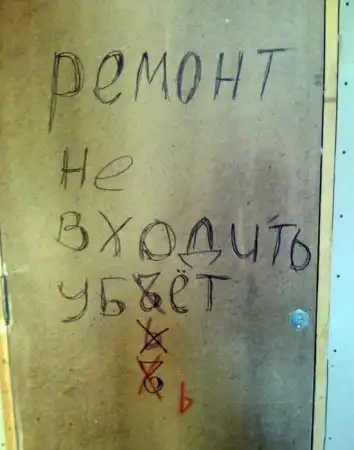 ремонт
не
входить
убъёт
ъ
ь